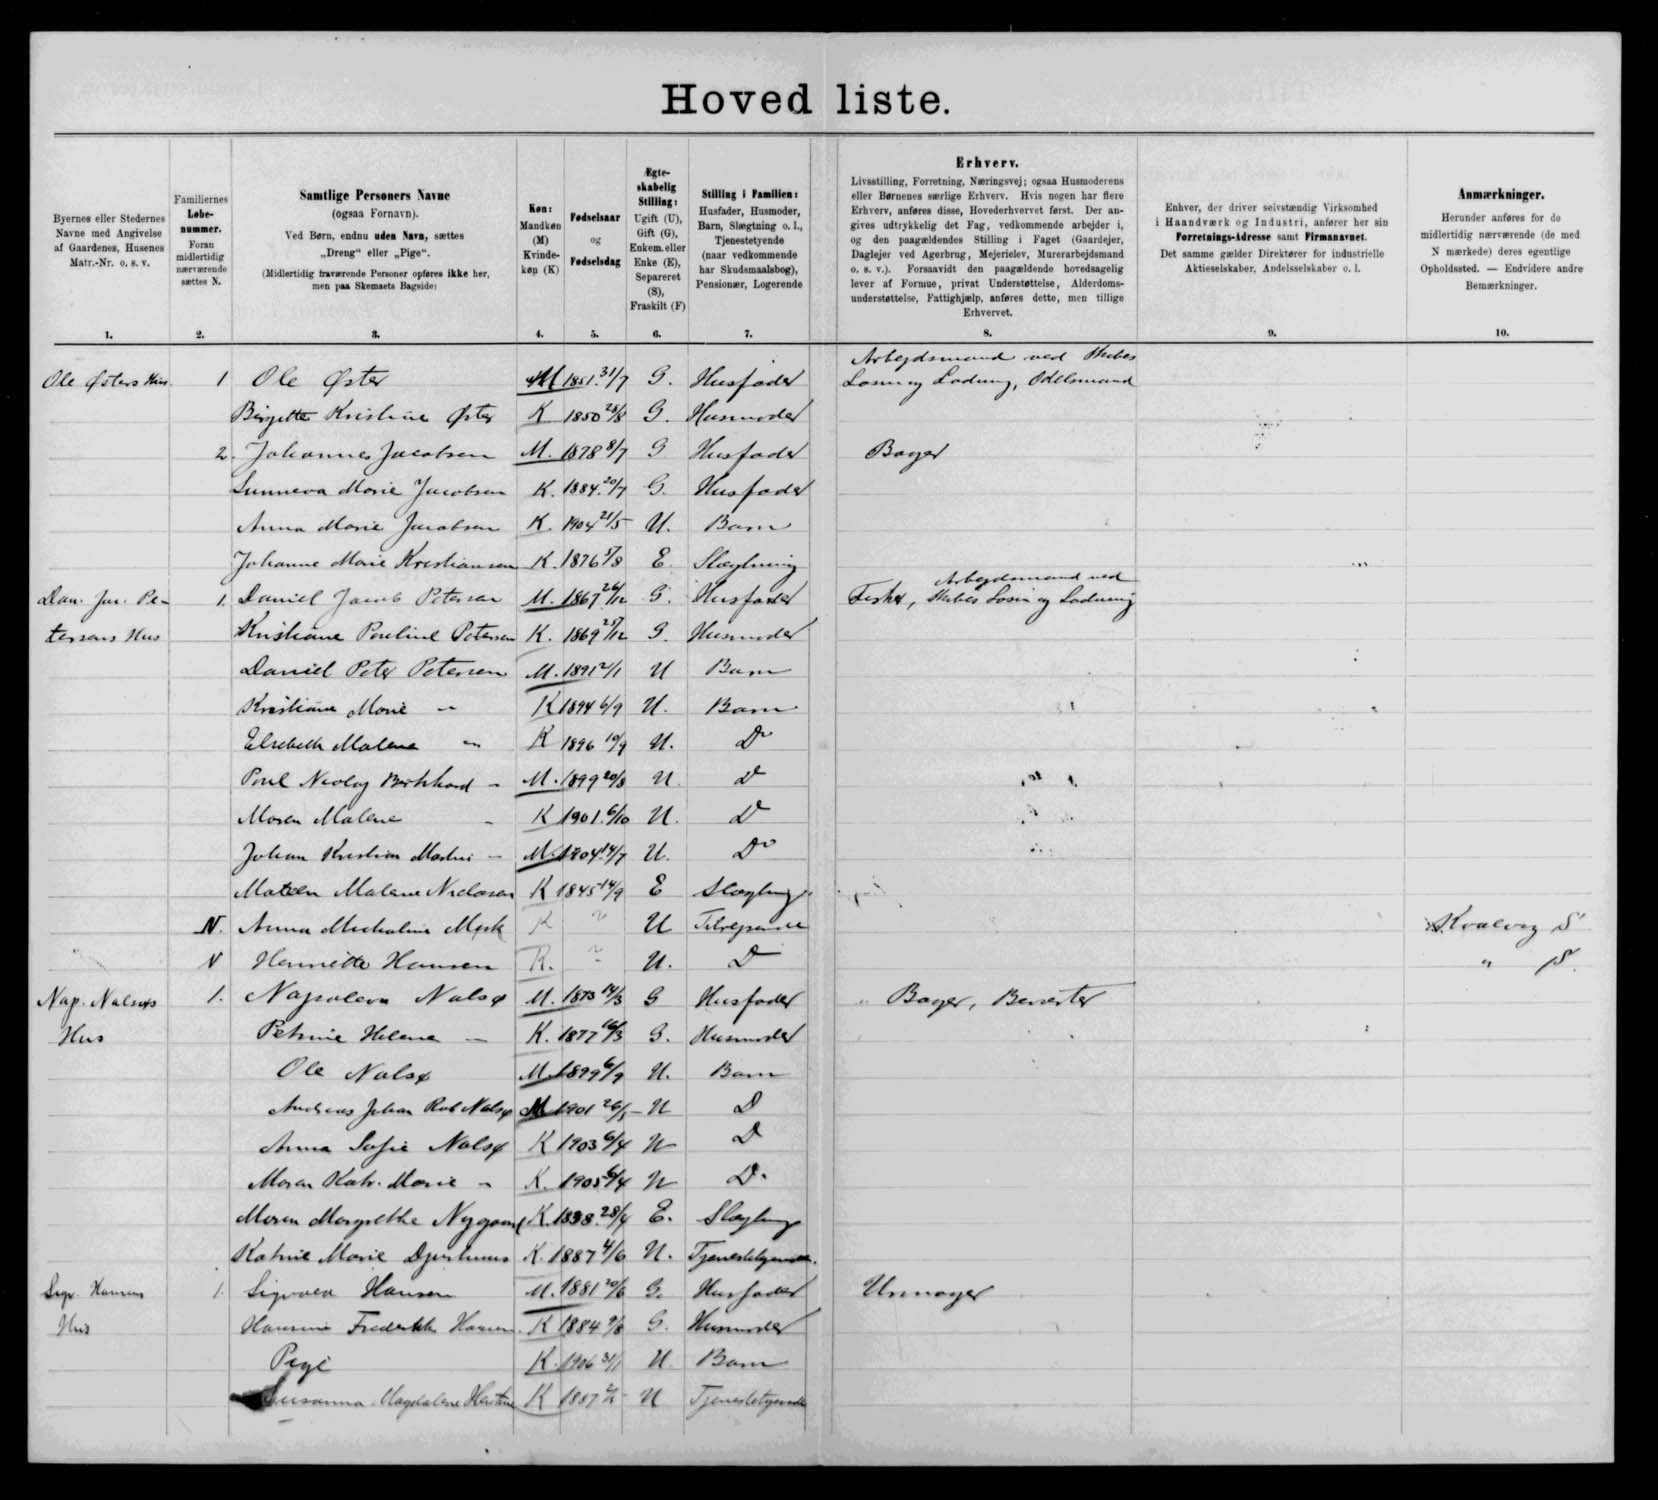 Hoved liste.
Byernes eller Stedernes
Navne med Angivelse
af Gaardenes, Husenes
Matr.-Nr. o. s. v.
1.
Familiernes
Løbe-
nummer.
Foran
midlertidig
nærværende
sættes N.
2.
Samtlige Personers Navne
(ogsaa Fornavn).
Ved Børn, endnu uden Navn, sættes
„Dreng“ eller „Pige“.
(Midlertidig fraværende Personer opføres ikke her,
men paa Skemaets Bagside)
3.
Køn:
Mandkøn
(M)
Kvinde-
køn (K)
4.
Fødselsaar
og
Fødselsdag
5.
Ægte-
skabelig
Stilling:
Ugift (U),
Gift (G),
Enkem. eller
Enke (E),
Separeret
(S),
Fraskilt (F)
6.
Stilling i Familien:
Husfader, Husmoder,
Barn, Slægtning o. l.,
Tjenestetyende
(naar vedkommende
har Skudsmaalsbog),
Pensionær, Logerende
7.
Erhverv.
Livsstilling, Forretning, Næringsvej; ogsaa Husmoderens
eller Børnenes særlige Erhverv. Hvis nogen har flere
Erhverv, anføres disse, Hovederhvervet først. Der an-
gives udtrykkelig det Fag, vedkommende arbejder i,
og den paagældendes Stilling i Faget (Gaardejer,
Daglejer ved Agerbrug, Mejerielev, Murerarbejdsmand
o. s. v.). Forsaavidt den paagældende hovedsagelig
lever af Formue, privat Understøttelse, Alderdoms-
understøttelse, Fattighjælp, anføres dette, men tillige
Erhvervet.
8.
Enhver, der driver selvstændig Virksomhed
i Haandværk og Industri, anfører her sin
Forretnings-Adresse samt Firmanavnet.
Det samme gælder Direktører for industrielle
Aktieselskaber, Andelsselskaber o. l.
9.
Anmærkninger.
Herunder anføres for de
midlertidig nærværende (de med
N mærkede) deres egentlige
Opholdssted. — Endvidere andre
Bemærkninger.
10.
Arbejdsmand ved Skibes
Ole Østers Hus. 1 Ole Øster M 1851 31/7 G. Husfader Losn og Ladning, Odelsmand
Birgitte Kristine Øster K 1850 28/8 G. Husmoder
2. Johannes Jacobsen M. 1878 8/7 G Husfader Bager
Sunneva Marie Jacobsen K. 1884 20/7 G. Husfader
Anna Marie Jacobsen K. 1904 21/5 U. Barn
Johanne Marie Kristiansen K. 1876 E. Slægtning
Arbejdsmand ved
Dan. Jac. Pe- 1. Daniel Jacob Petersen M. 1867 26/12 G. Husfader Fisker, Skibes Losn og Ladning
tersens Hus Kristiane Pouline Petersen K. 1869 25/12 G. Husmoder
Daniel Peter Petersen M. 1891 2/1 U Barn
Kristiane Marie " K 1894 6/9 U. Barn
Elsebeth Malene " K 1896 19/9 U. Do
Poul Nicolaj " M. 1899 20/8 U. D
Maren Malene " K 1901 6/10 U. D
Johan Kristian " M. 1904 14/7 U. Do
Malene K 1845 14/9 E Slægtning
N. Anna K ? U Kvalvig S
N Henriette Hansen K. ? U. D " S.
Nap. Nalsøs 1. Napoleon Nalsø M. 1873 14/3 G Husfader Bager,
Hus Petrine Helene — K. 1877 16/3 G. Husmoder
Ole Nalsø M. 1899 6/9 U. Barn
Andreas Johan Nalsø M 1901 U D
Anna Sofie Nalsø K 1903 6/4 U D
Maren Katr. Marie " K. 1905 6/4 U D.
Maren Margrethe Nygaard K. 1838 28/4 E. Slægtning
Katrine Marie Djurhuus K. 1887 4/6 U. Tjenestetyende.
Sigv. Hansens 1. Sigvald Hansen M. 1881 20/6 G. Husfader Urmager
Hus Hansine Frederikke Hansen. K 1884 9/8 G. Husmoder
Pige K. 1906 31/1 U. Barn
Susanna Magdalene K 1887 U Tjenestetyende